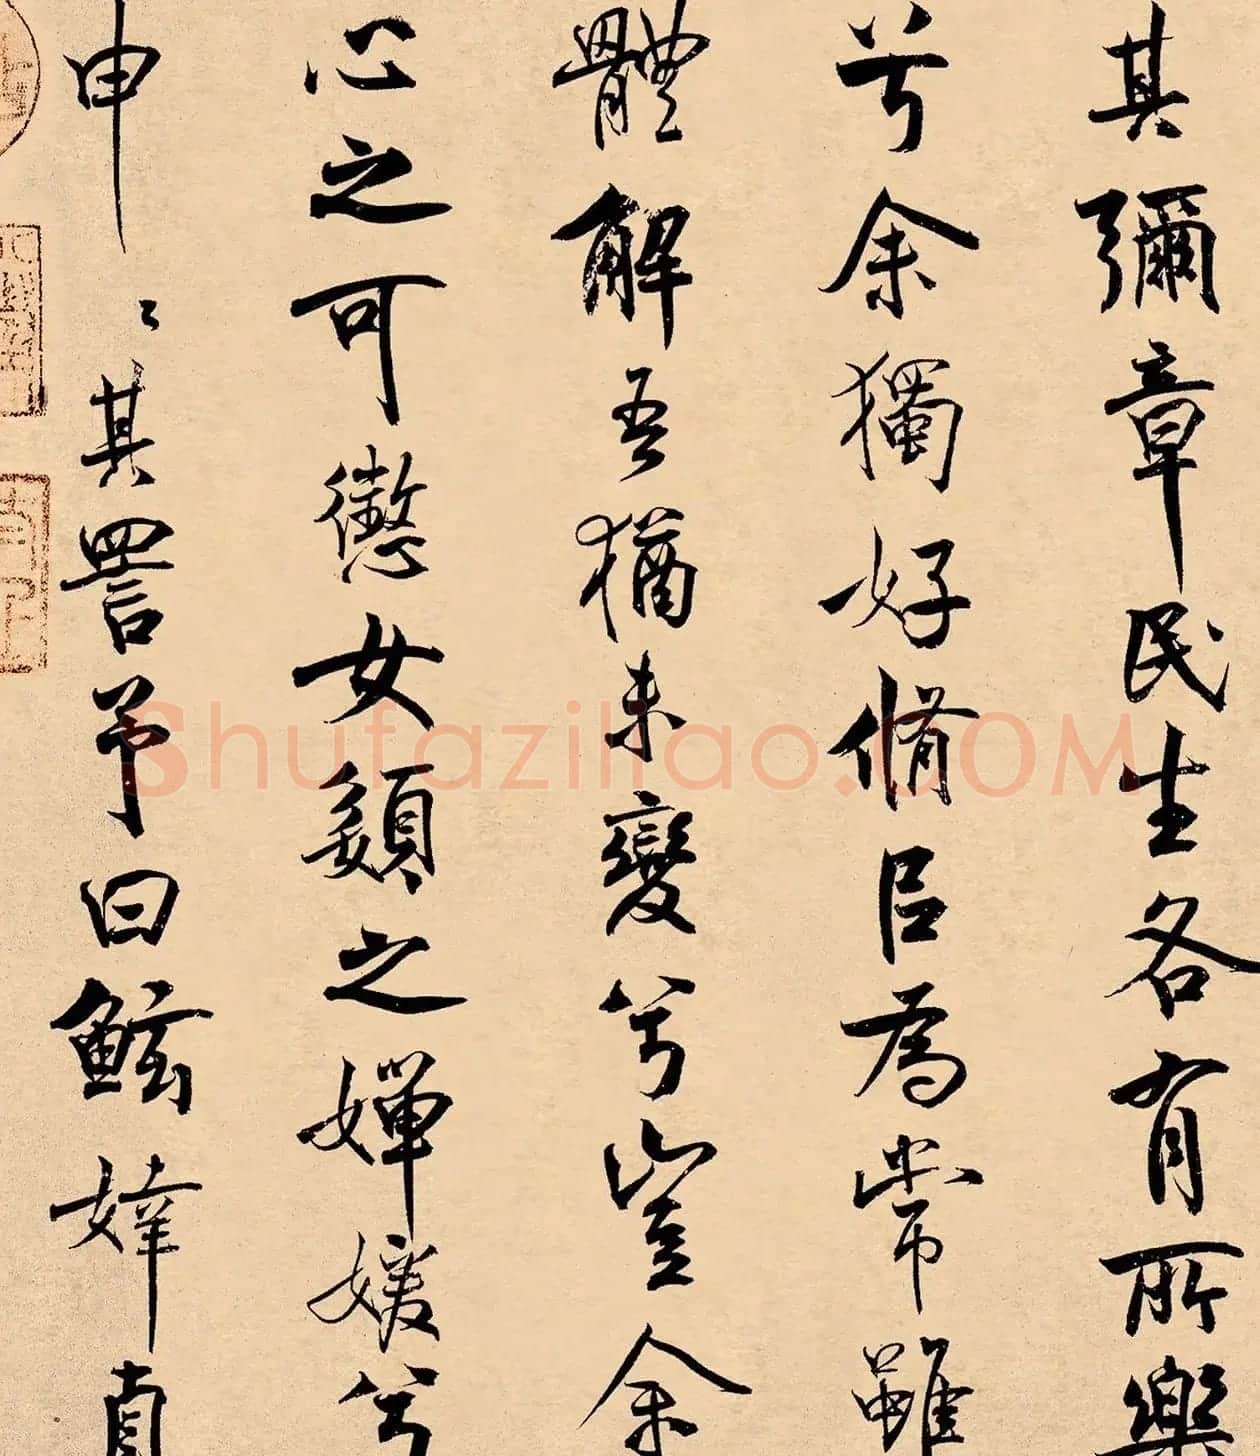 其彌章民生各有所樂
兮余獨好脩㠯為常雖
體解吾猶未變兮豈余
心之可懲女嬃之嬋媛兮
申〻其詈予曰鮌婞直
Shufaziliao.COM